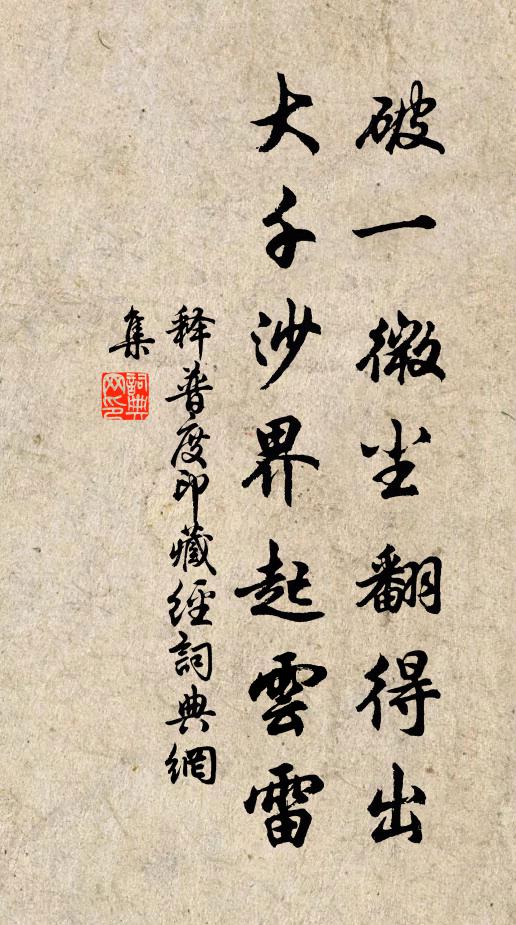 破一微尘翻得出
大千沙界起雲雷
释普度印藏經詞典網
集
詞典
网印